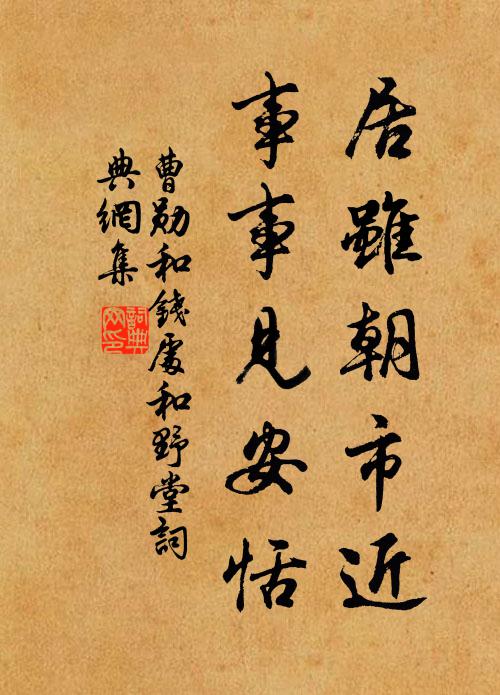 居雖朝市近
事事見安恬
曹勛和錢處和野堂詞
典網集
詞典
网印